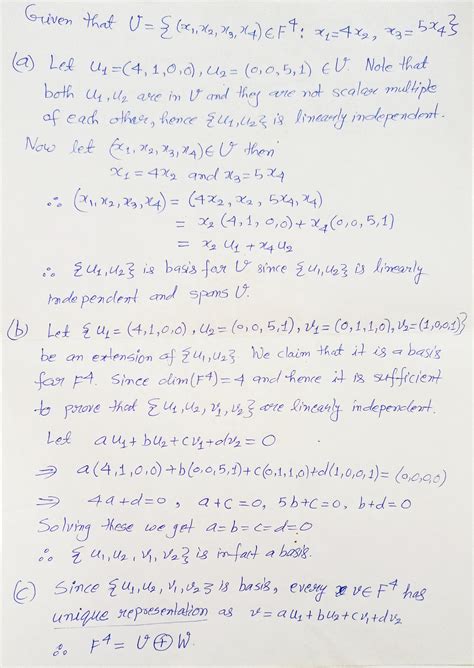 Given that U = {(x₁,x₂,x₃,x₄) ∈ F⁴: x₁=4x₂, x₃=5x₄}
(a) Let u₁=(4,1,0,0), u₂=(0,0,5,1) ∈ U. Note that
both u₁,u₂ are in U and they are not scalar multiple
of each other, hence {u₁,u₂} is linearly independent.
Now let (x₁,x₂,x₃,x₄) ∈ U then
x₁=4x₂ and x₃=5x₄
∴ (x₁,x₂,x₃,x₄) = (4x₂, x₂, 5x₄, x₄)
= x₂(4,1,0,0)+x₄(0,0,5,1)
= x₂u₁+x₄u₂
∴ {u₁,u₂} is basis for U since {u₁,u₂} is linearly
independent and spans U.
(b) Let {u₁=(4,1,0,0), u₂=(0,0,5,1), v₁=(0,1,1,0), v₂=(1,0,0,1)}
be an extension of {u₁,u₂}. We claim that it is a basis
for F⁴. Since dim(F⁴)=4 and hence it is sufficient
to prove that {u₁,u₂,v₁,v₂} are linearly independent.
Let au₁+bu₂+cv₁+dv₂=0
⇒ a(4,1,0,0)+b(0,0,5,1)+c(0,1,1,0)+d(1,0,0,1)=(0,0,0,0)
⇒ 4a+d=0, a+c=0, 5b+c=0, b+d=0
Solving these we get a=b=c=d=0
∴ {u₁,u₂,v₁,v₂} is infact a basis.
(c) Since {u₁,u₂,v₁,v₂} is basis, every v∈F⁴ has
unique representation as v=au₁+bu₂+cv₁+dv₂
∴ F⁴ = U⊕W.